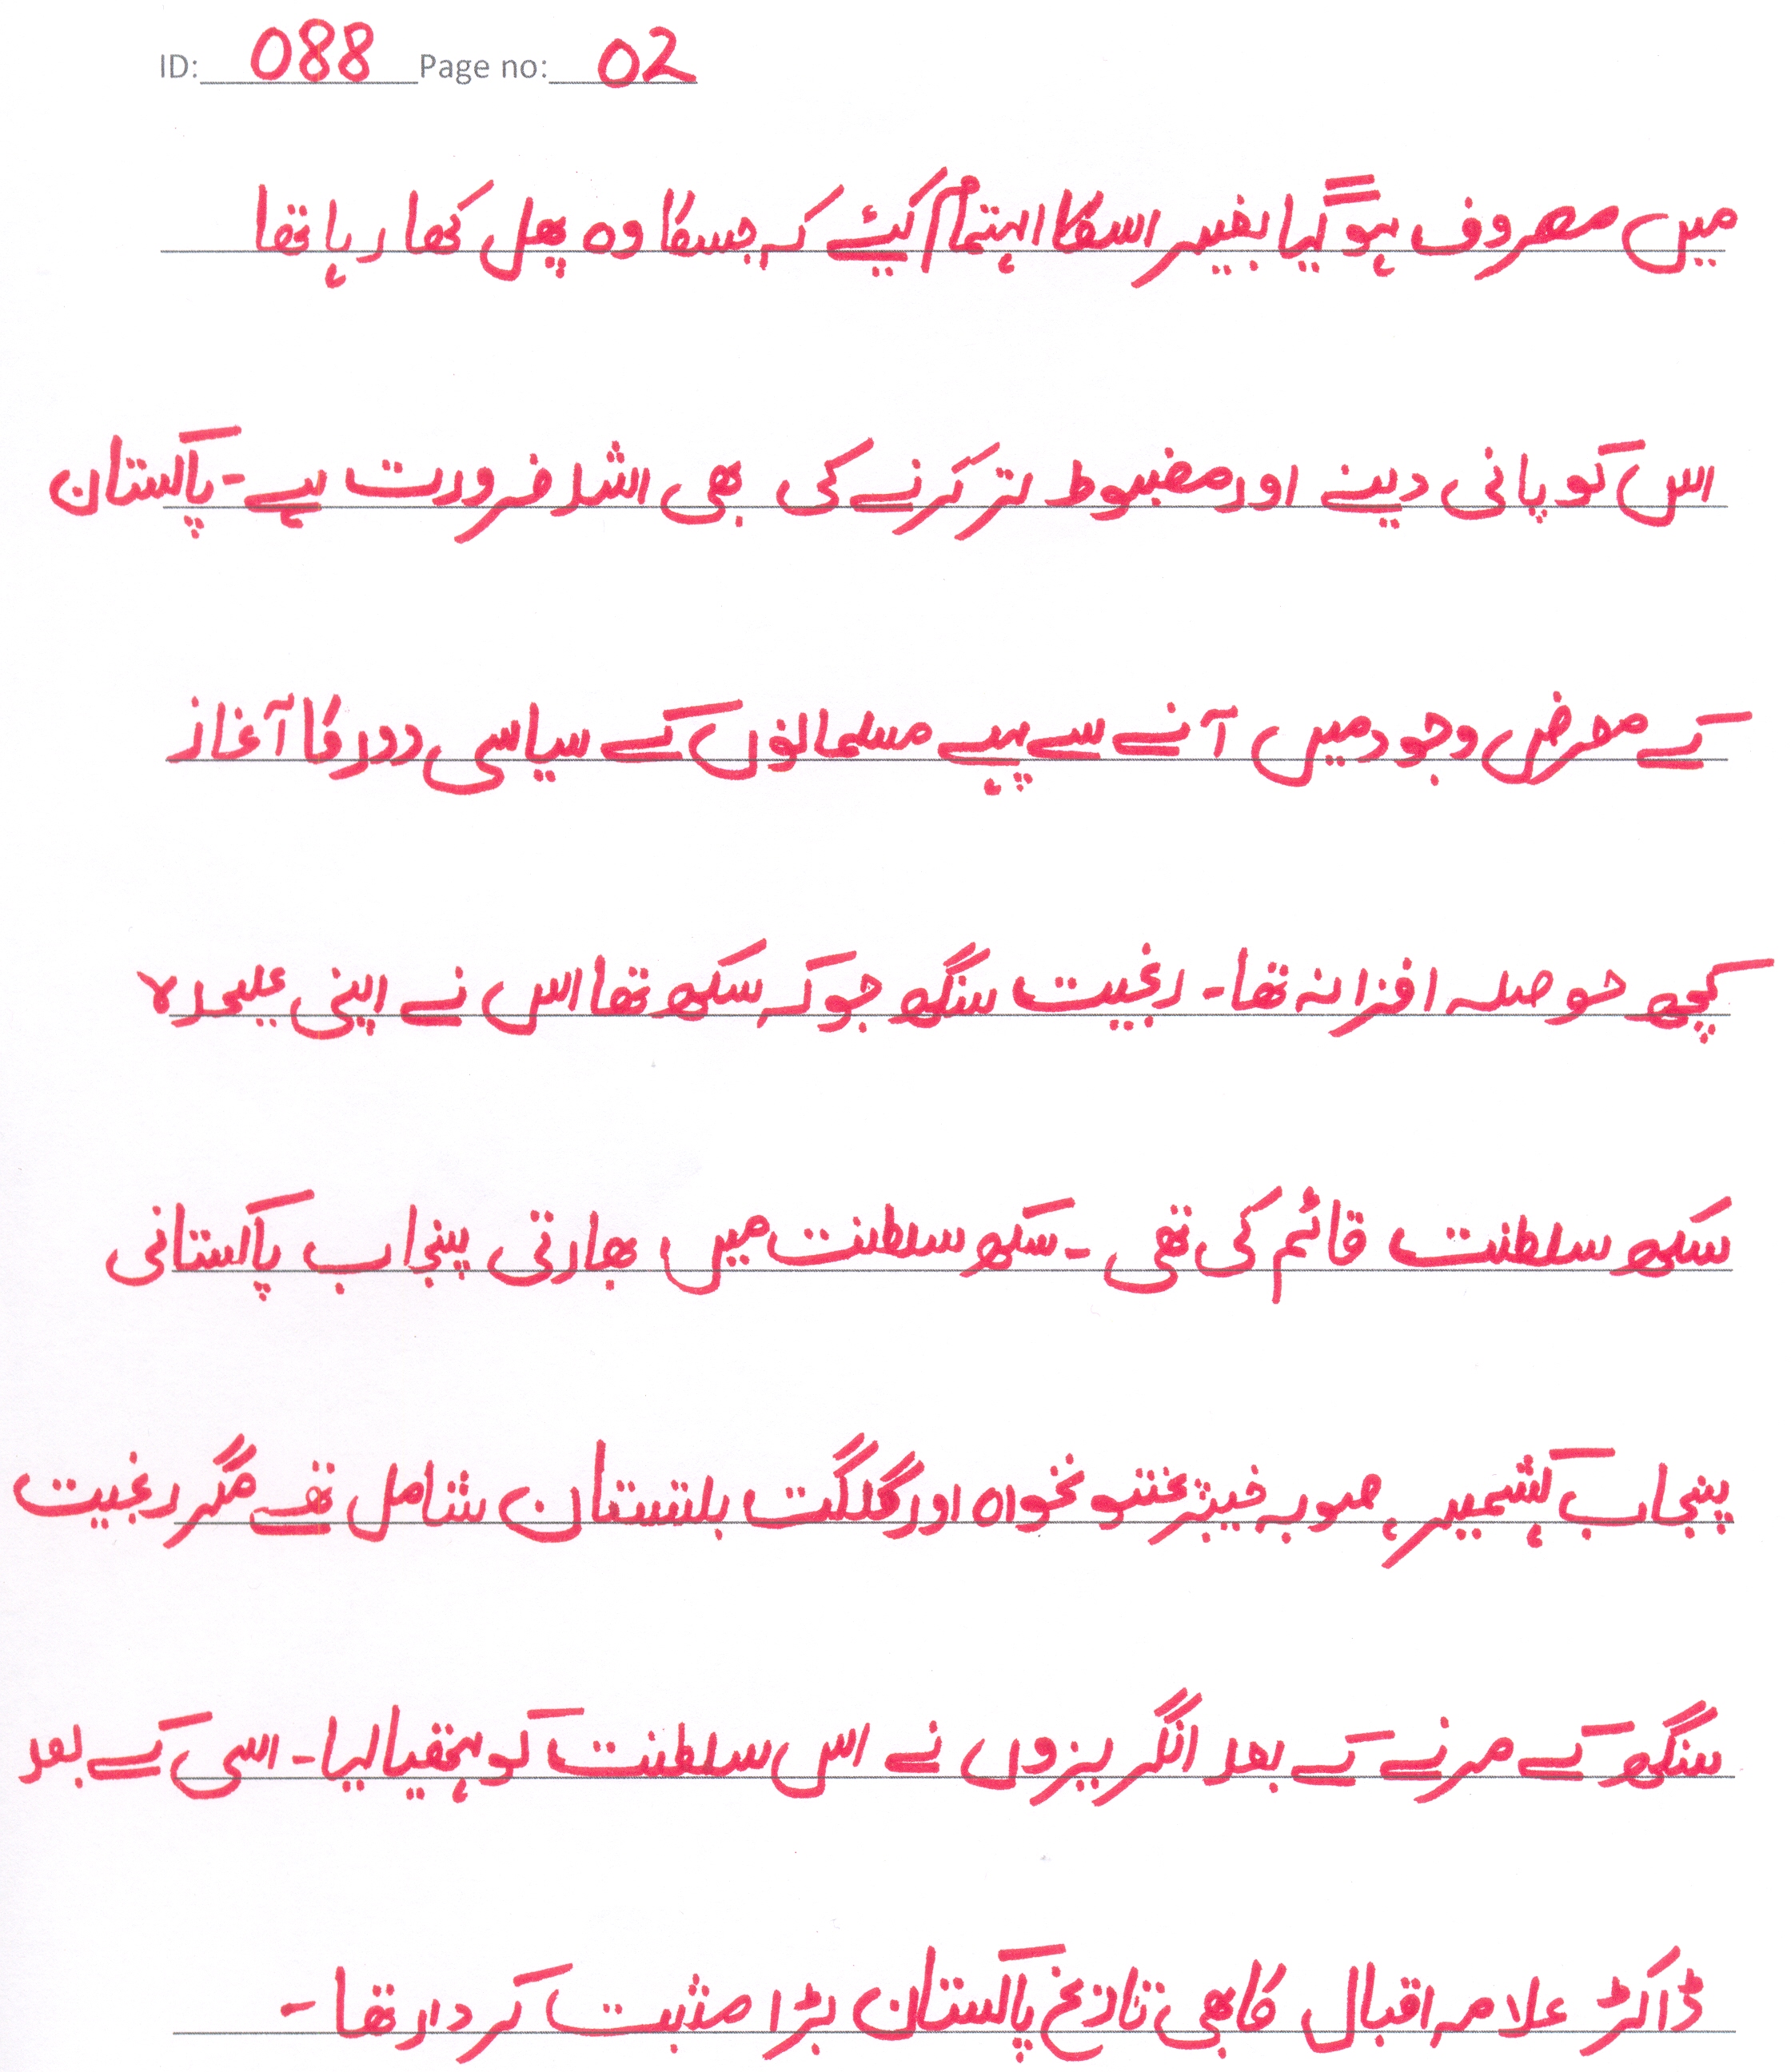 ID: 088 Page no: 02
میں مصروف ہوگیا بغیر اسکا اہتمام کیئے کہ جسکا وہ پھل کھا رہا تھا
اس کو پانی دینے اور مضبوط تر کرنے کی بھی اشد ضرورت ہے۔ پاکستان
کے معرض وجود میں آنے سے پہلے مسلمانوں کے سیاسی دور کا آغاز
کچھ حوصلہ افزا نہ تھا۔ رنجیت سنگھ جو کہ سکھ تھا اس نے اپنی علیحدہ
سکھ سلطنت قائم کی تھی ۔ سکھ سلطنت میں بھارتی پنجاب پاکستانی
پنجاب کشمیر، صوبہ خیبر پختونخواہ اور گلگت بلتستان شامل تھے مگر رنجیت
سنگھ کے مرنے کے بعد انگریزوں نے اس سلطنت کو ہتھیا لیا۔ اسی کے بعد
ڈاکڑ علامہ اقبال کا بھی تاریخ پاکستان بڑا مثبت کردار تھا۔